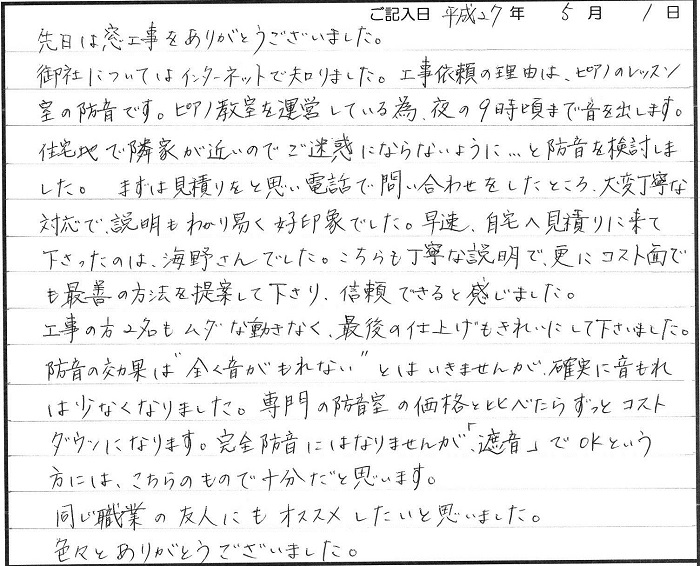 ご記入日 平成27年 5月 1日
先日は窓工事をありがとうございました。
御社についてはインターネットで知りました。工事依頼の理由は、ピアノのレッスン
室の防音です。ピアノ教室を運営している為、夜の9時頃まで音を出します。
住宅地で隣家が近いのでご迷惑にならないように…と防音を検討しま
した。 まずは見積りをと思い電話で問い合わせをしたところ、大変丁寧な
対応で、説明もわかり易く好印象でした。早速、自宅へ見積りに来て
下さったのは、海野さんでした。こちらも丁寧な説明で、更にコスト面で
も最善の方法を提案して下さり、信頼できると感じました。
工事の方2名もムダな動きなく、最後の仕上げもきれいにして下さいました。
防音の効果は"全く音がもれない"とはいきませんが、確実に音もれ
は少なくなりました。専門の防音室の価格と比べたらずっとコスト
ダウンになります。完全防音にはなりませんが、「遮音」でOKという
方には、こちらのもので十分だと思います。
同じ職業の友人にもオススメしたいと思いました。
色々とありがとうございました。